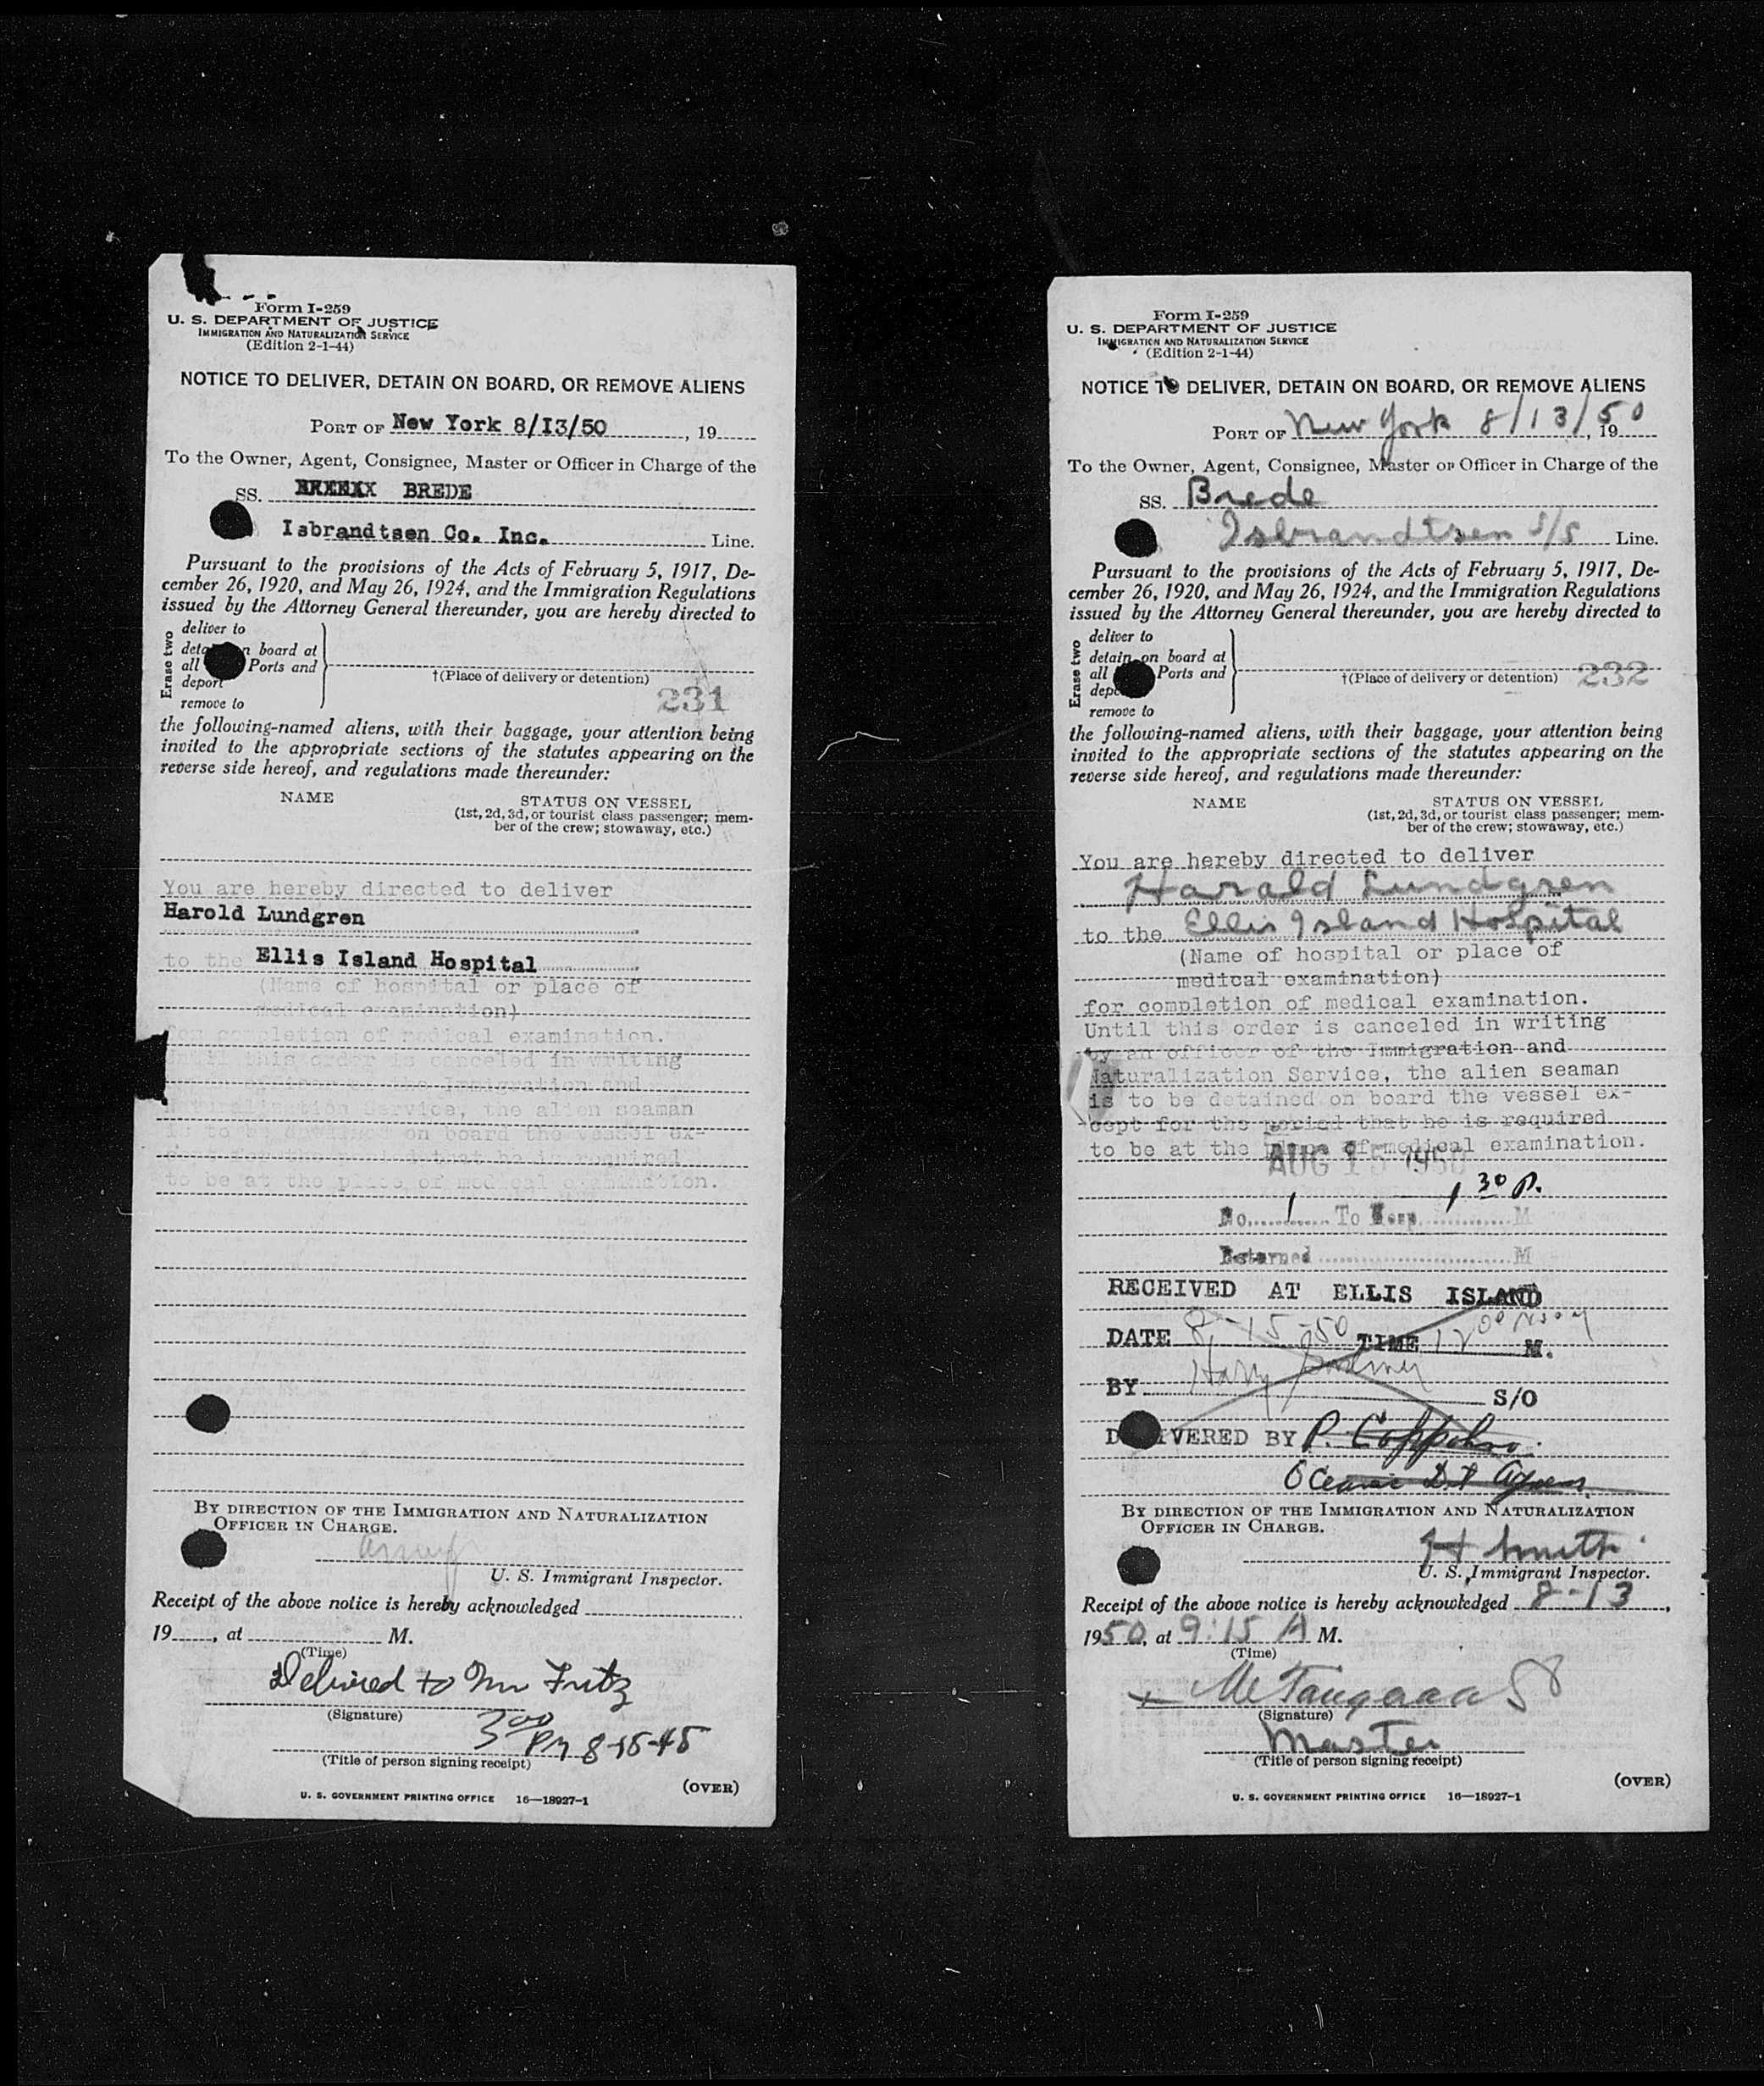 Form I-259
U. S. DEPARTMENT OF JUSTICE
IMMIGRATION AND NATURALIZATION SERVICE
(Edition 2-1-44)
NOTICE TO DELIVER, DETAIN ON BOARD, OR REMOVE ALIENS
PORT OF New York 8/I3/50, 19
To the Owner, Agent, Consignee, Master or Officer in Charge of the
SS. BREDE
Isbrandtsen Co. Inc. Line.
Pursuant to the provisions of the Acts of February 5, 1917, De-
cember 26, 1920, and May 26, 1924, and the Immigration Regulations
issued by the Attorney General thereunder, you are hereby directed to
Erase two
deliver to
deta n board at
all Ports and
deport
remove to
†(Place of delivery or detention)
231
the following-named aliens, with their baggage, your attention being
invited to the appropriate sections of the statutes appearing on the
reverse side hereof, and regulations made thereunder:
NAME
STATUS ON VESSEL
(1st, 2d, 3d, or tourist class passenger; mem-
ber of the crew; stowaway, etc.)
You are hereby directed to deliver
Harold Lundgren
to the Ellis Island Hospital
(Name of hospital or place of
medical examination)
for completion of medical examination.
Until this order is canceled in writing
by an officer of the Immigration and
Naturalization Service, the alien seaman
is to be detained on board the vessel ex-
cept for the period that he is required
to be at the place of medical examination.
BY DIRECTION OF THE IMMIGRATION AND NATURALIZATION
OFFICER IN CHARGE.
U. S. Immigrant Inspector.
Receipt of the above notice is hereby acknowledged
19, at M.
(Time)
Delivered to Mr Fritz
(Signature)
3 00 PM 8-15-45
(Title of person signing receipt)
(OVER)
U. S. GOVERNMENT PRINTING OFFICE 16—18927-1
Form I-259
U. S. DEPARTMENT OF JUSTICE
IMMIGRATION AND NATURALIZATION SERVICE
(Edition 2-1-44)
NOTICE TO DELIVER, DETAIN ON BOARD, OR REMOVE ALIENS
PORT OF New York 8/13/, 1950
To the Owner, Agent, Consignee, Master or Officer in Charge of the
SS. Brede
Isbrandtsen S/S Line.
Pursuant to the provisions of the Acts of February 5, 1917, De-
cember 26, 1920, and May 26, 1924, and the Immigration Regulations
issued by the Attorney General thereunder, you are hereby directed to
Erase two
deliver to
detain on board at
all Ports and
depo
remove to
†(Place of delivery or detention)
232
the following-named aliens, with their baggage, your attention being
invited to the appropriate sections of the statutes appearing on the
reverse side hereof, and regulations made thereunder:
NAME
STATUS ON VESSEL
(1st, 2d, 3d, or tourist class passenger; mem-
ber of the crew; stowaway, etc.)
You are hereby directed to deliver
Harald Lundgren
to the Ellis Island Hospital
(Name of hospital or place of
medical examination)
for completion of medical examination.
Until this order is canceled in writing
by an officer of the Immigration and
Naturalization Service, the alien seaman
is to be detained on board the vessel ex-
cept for the period that he is required
to be at the place of medical examination.
AUG 15 1950
No. 1 To Hosp. 1 30 P. M
Returned M
RECEIVED AT ELLIS ISLAND
DATE 8-15-50 TIME 12 00 noon M.
BY Harry S/O
DELIVERED BY P.
BY DIRECTION OF THE IMMIGRATION AND NATURALIZATION
OFFICER IN CHARGE.
H Smith
U. S. Immigrant Inspector.
Receipt of the above notice is hereby acknowledged 8-13,
1950, at 9:15 A M.
(Time)
(Signature)
Master
(Title of person signing receipt)
(OVER)
U. S. GOVERNMENT PRINTING OFFICE 16—18927-1